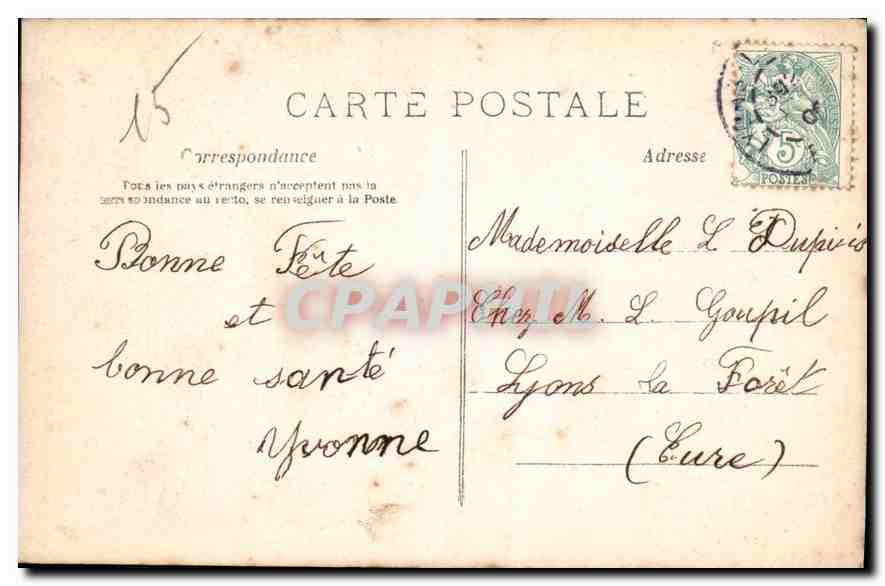 15
CARTE POSTALE
Correspondance
Tous les pays étrangers n'acceptent pas la
correspondance au recto, se renseigner à la Poste
Bonne Fête
et
bonne santé
Yvonne
Adresse
5
POSTES
Mademoiselle L
Chez M. L. Goupil
Lyons la Forêt
(Eure)
CPAPHIL